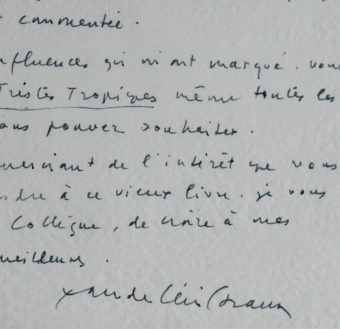 t commentée.
nfluences qui m'ont marqué. vous
Tristes Tropiques même toutes les
ous pouvez souhaiter.
merciant de l'intérêt que vous
ndre à ce vieux livre. je vous
Collègue, de croire à mes
meilleurs.
Claude Lévi Strauss